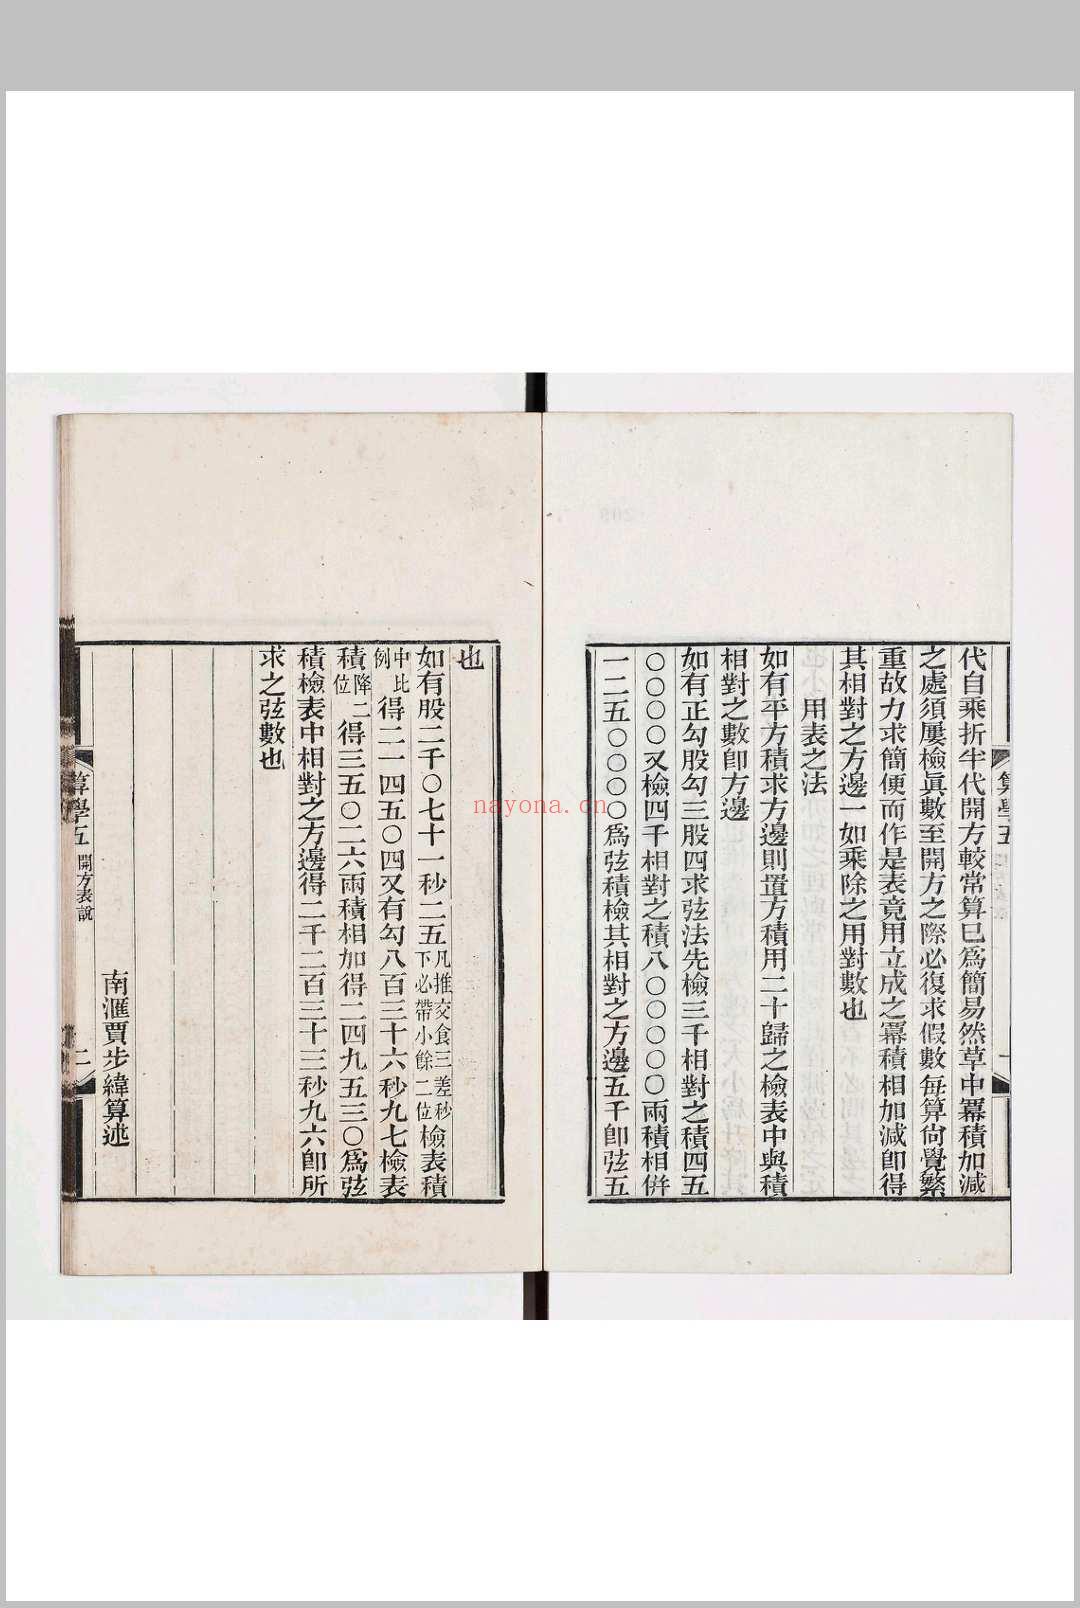 代自乘折半代開方較常算已爲簡易然草中冪積加減
之處須屢檢眞數至開方之際必復求假數每算尙覺繁
重故力求簡便而作是表竟用立成之冪積相加減卽得
其相對之方邊一如乘除之用對數也
用表之法
如有平方積求方邊則置方積用二十歸之檢表中與積
相對之數卽方邊
如有正勾股勾三股四求弦法先檢三千相對之積四五
〇〇〇〇又檢四千相對之積八〇〇〇〇〇兩積相併
一二五〇〇〇〇爲弦積檢其相對之方邊五千卽弦五
也
如有股二千〇七十一秒二五凡推交食三差秒下必帶小餘二位檢表積
中比例得二一四五〇四又有勾八百三十六秒九七檢表
積降二位得三五〇二六兩積相加得二四九五三〇爲弦
積檢表中相對之方邊得二千二百三十三秒九六卽所
求之弦數也
南滙賈步緯算述
算學五 開方表說 二
算學五
nayona.cn